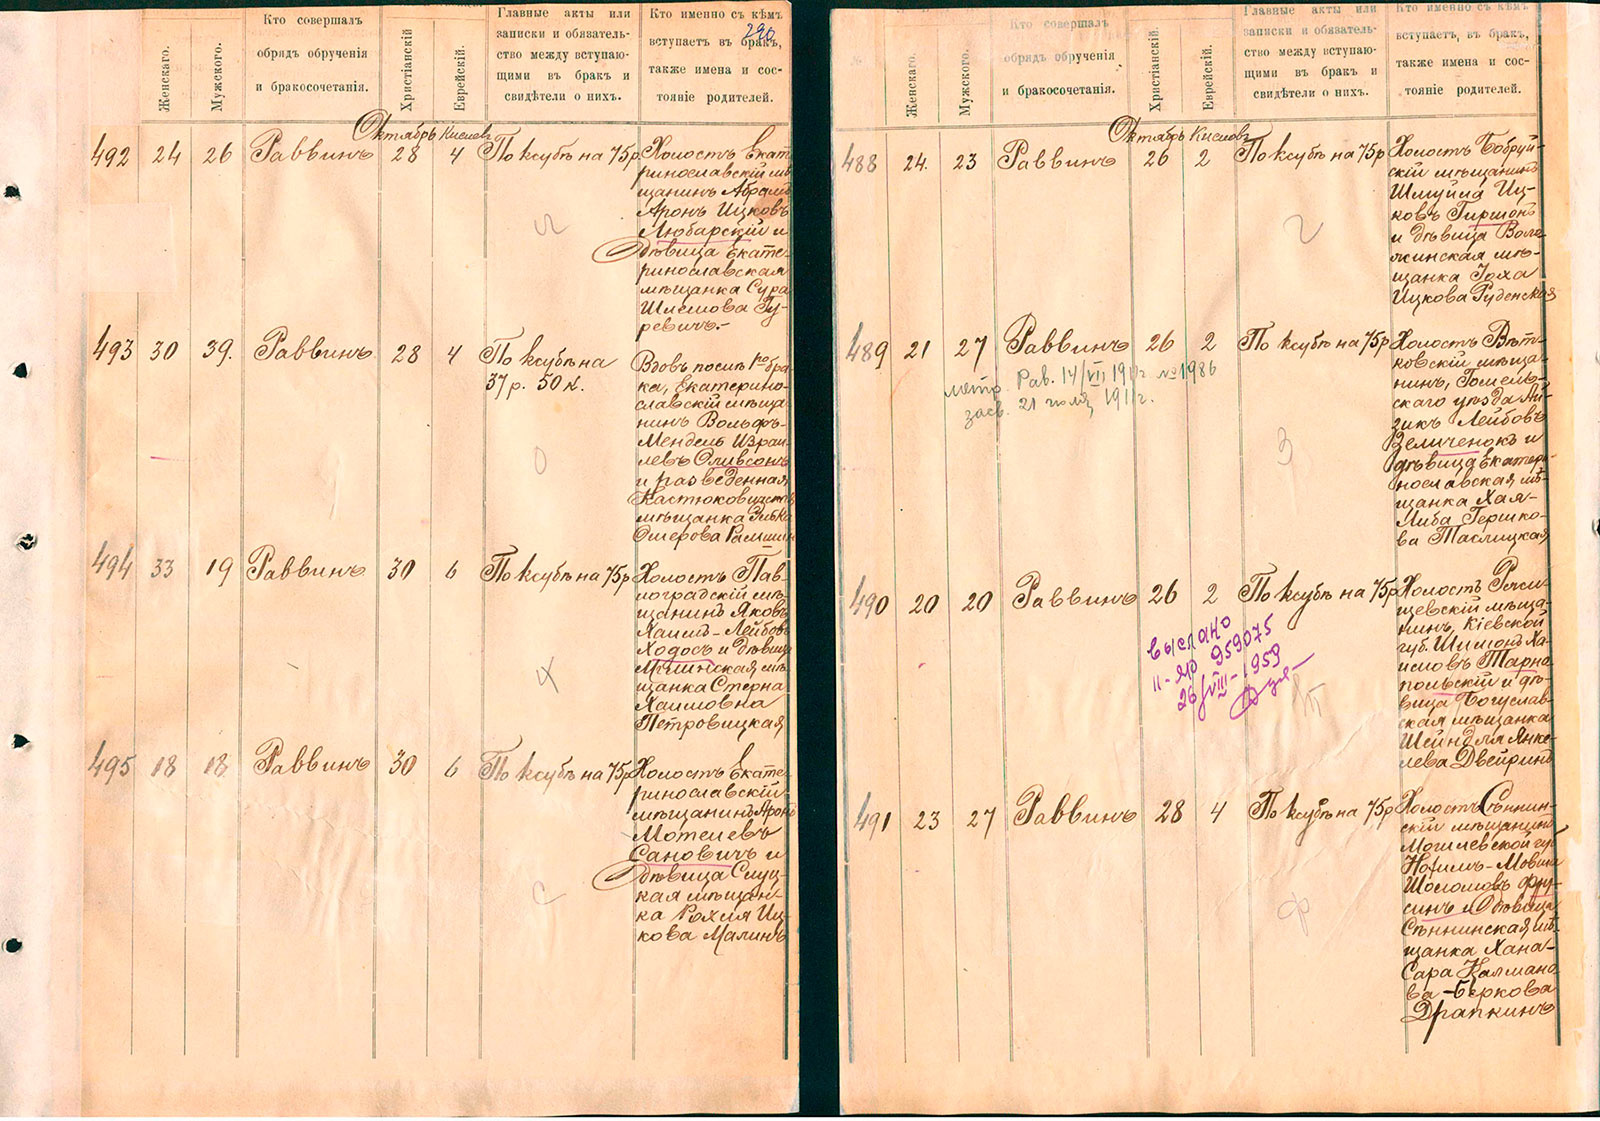 290
Женскаго.
Мужского.
Кто совершалъ
обрядъ обрученія
и бракосочетанія.
Христіанскій
Еврейскій.
Главные акты или
записки и обязатель-
ство между вступаю-
щими въ бракъ и
свидѣтели о нихъ.
Кто именно съ кѣмъ
вступаетъ въ бракъ,
также имена и сос-
тояніе родителей.
Октябрь Кислевъ
492 24 26 Раввинъ 28 4 По ксубѣ на 75р
Холостъ Екат
ринославскій мѣ
щанинъ Абрамъ
Аронъ Ицковъ
Любарскій и
дѣвица Екате-
ринославская
мѣщанка Сура
Шлемова Гу-
ревичъ.-
493 30 39. Раввинъ 28 4 По ксубѣ на
37 р. 50 к.
Вдовъ послѣ 1го бра
ка, Екатерино-
славскій мѣща
нинъ Вольфъ-
Мендель Израи
левъ Оливсонъ
и разведенная
мѣщанка
Омерова
494 33 19 Раввинъ 30 6 По ксубѣ на 75р
Холостъ Пав-
лоградскій мѣ-
щанинъ Яковъ
Хаимъ-Лейбовъ
Ходосъ и дѣвица
мѣ-
щанка Стерна
Хаимовна
Петровицкая
495 18 18 Раввинъ 30 6 По ксубѣ на 75р
Холостъ Екате-
ринославскій
мѣщанинъ Аронъ
Мотелевъ
Сановичъ и
дѣвица Слуц-
кая мѣщан-
ка Рохля Иц-
кова Малинъ
Женскаго.
Мужского.
Кто совершалъ
обрядъ обрученія
и бракосочетанія.
Христіанскій
Еврейскій.
Главные акты или
записки и обязатель-
ство между вступаю-
щими въ бракъ и
свидѣтели о нихъ.
Кто именно съ кѣмъ
вступаетъ въ бракъ,
также имена и сос-
тояніе родителей.
Октябрь Кислевъ
488 24. 23 Раввинъ 26 2 По ксубѣ на 75р
Холостъ Бобруй-
скій мѣщанинъ
Шмуйла Иц-
ковъ Гиршонъ
и дѣвица Воло
жинская мѣ-
щанка Іоха
Ицкова Руденская
489 21 27 Раввинъ 26 2 По ксубѣ на 75р
метр. Рав. 14/VII 1911г. № 1986
засв. 21 1911г.
Холостъ Вѣт-
ковскій мѣща-
нинъ, Гомель-
скаго уѣзда Ай-
зикъ Лейбовъ
Зеличенокъ и
дѣвица Екатери-
нославская мѣ-
щанка Хая-
Либа Гершко-
ва Таслицкая
490 20 20 Раввинъ 26 2 По ксубѣ на 75р
выслано
II-ЯР 959075
26/VIII-1959
Холостъ Ржи-
щевскій мѣща-
нинъ, Кіевской
губ. Шимонъ Ха-
имовъ Тарно-
польскій и дѣ-
вица Богуслав-
ская мѣщанка
Шейндля Янке-
лева Двейринъ
491 23 27 Раввинъ 28 4 По ксубѣ на 75р
Холостъ Сѣннин-
скій мѣщанинъ
Могилевской губ
Шоломовъ Фру-
синъ и дѣвица
Сѣннинская мѣ-
щанка Хана-
Сара Калмано-
ва-Беркова
Драпкинъ